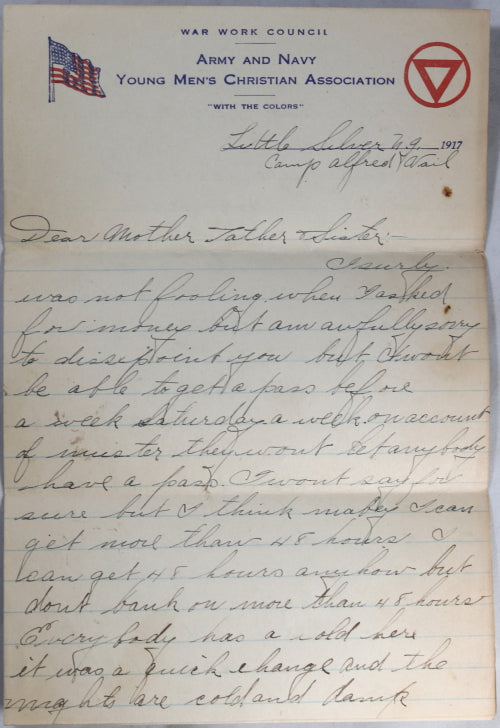 WAR WORK COUNCIL
ARMY AND NAVY
YOUNG MEN'S CHRISTIAN ASSOCIATION
"WITH THE COLORS"
Little Silver N.J. 1917
Camp Alfred Vail
Dear Mother Father & Sister:-
I surly
was not fooling when I asked
for money but am awfully sorry
to dissipoint you but I wont
be able to get a pass before
a week Saturday a week on account
of muster they wont let anybody
have a pass. I wont say for
sure but I think mabey I can
get more than 48 hours I
can get 48 hours anyhow but
dont bank on more than 48 hours
Everybody has a cold here
it was a quick change and the
nights are cold and damp